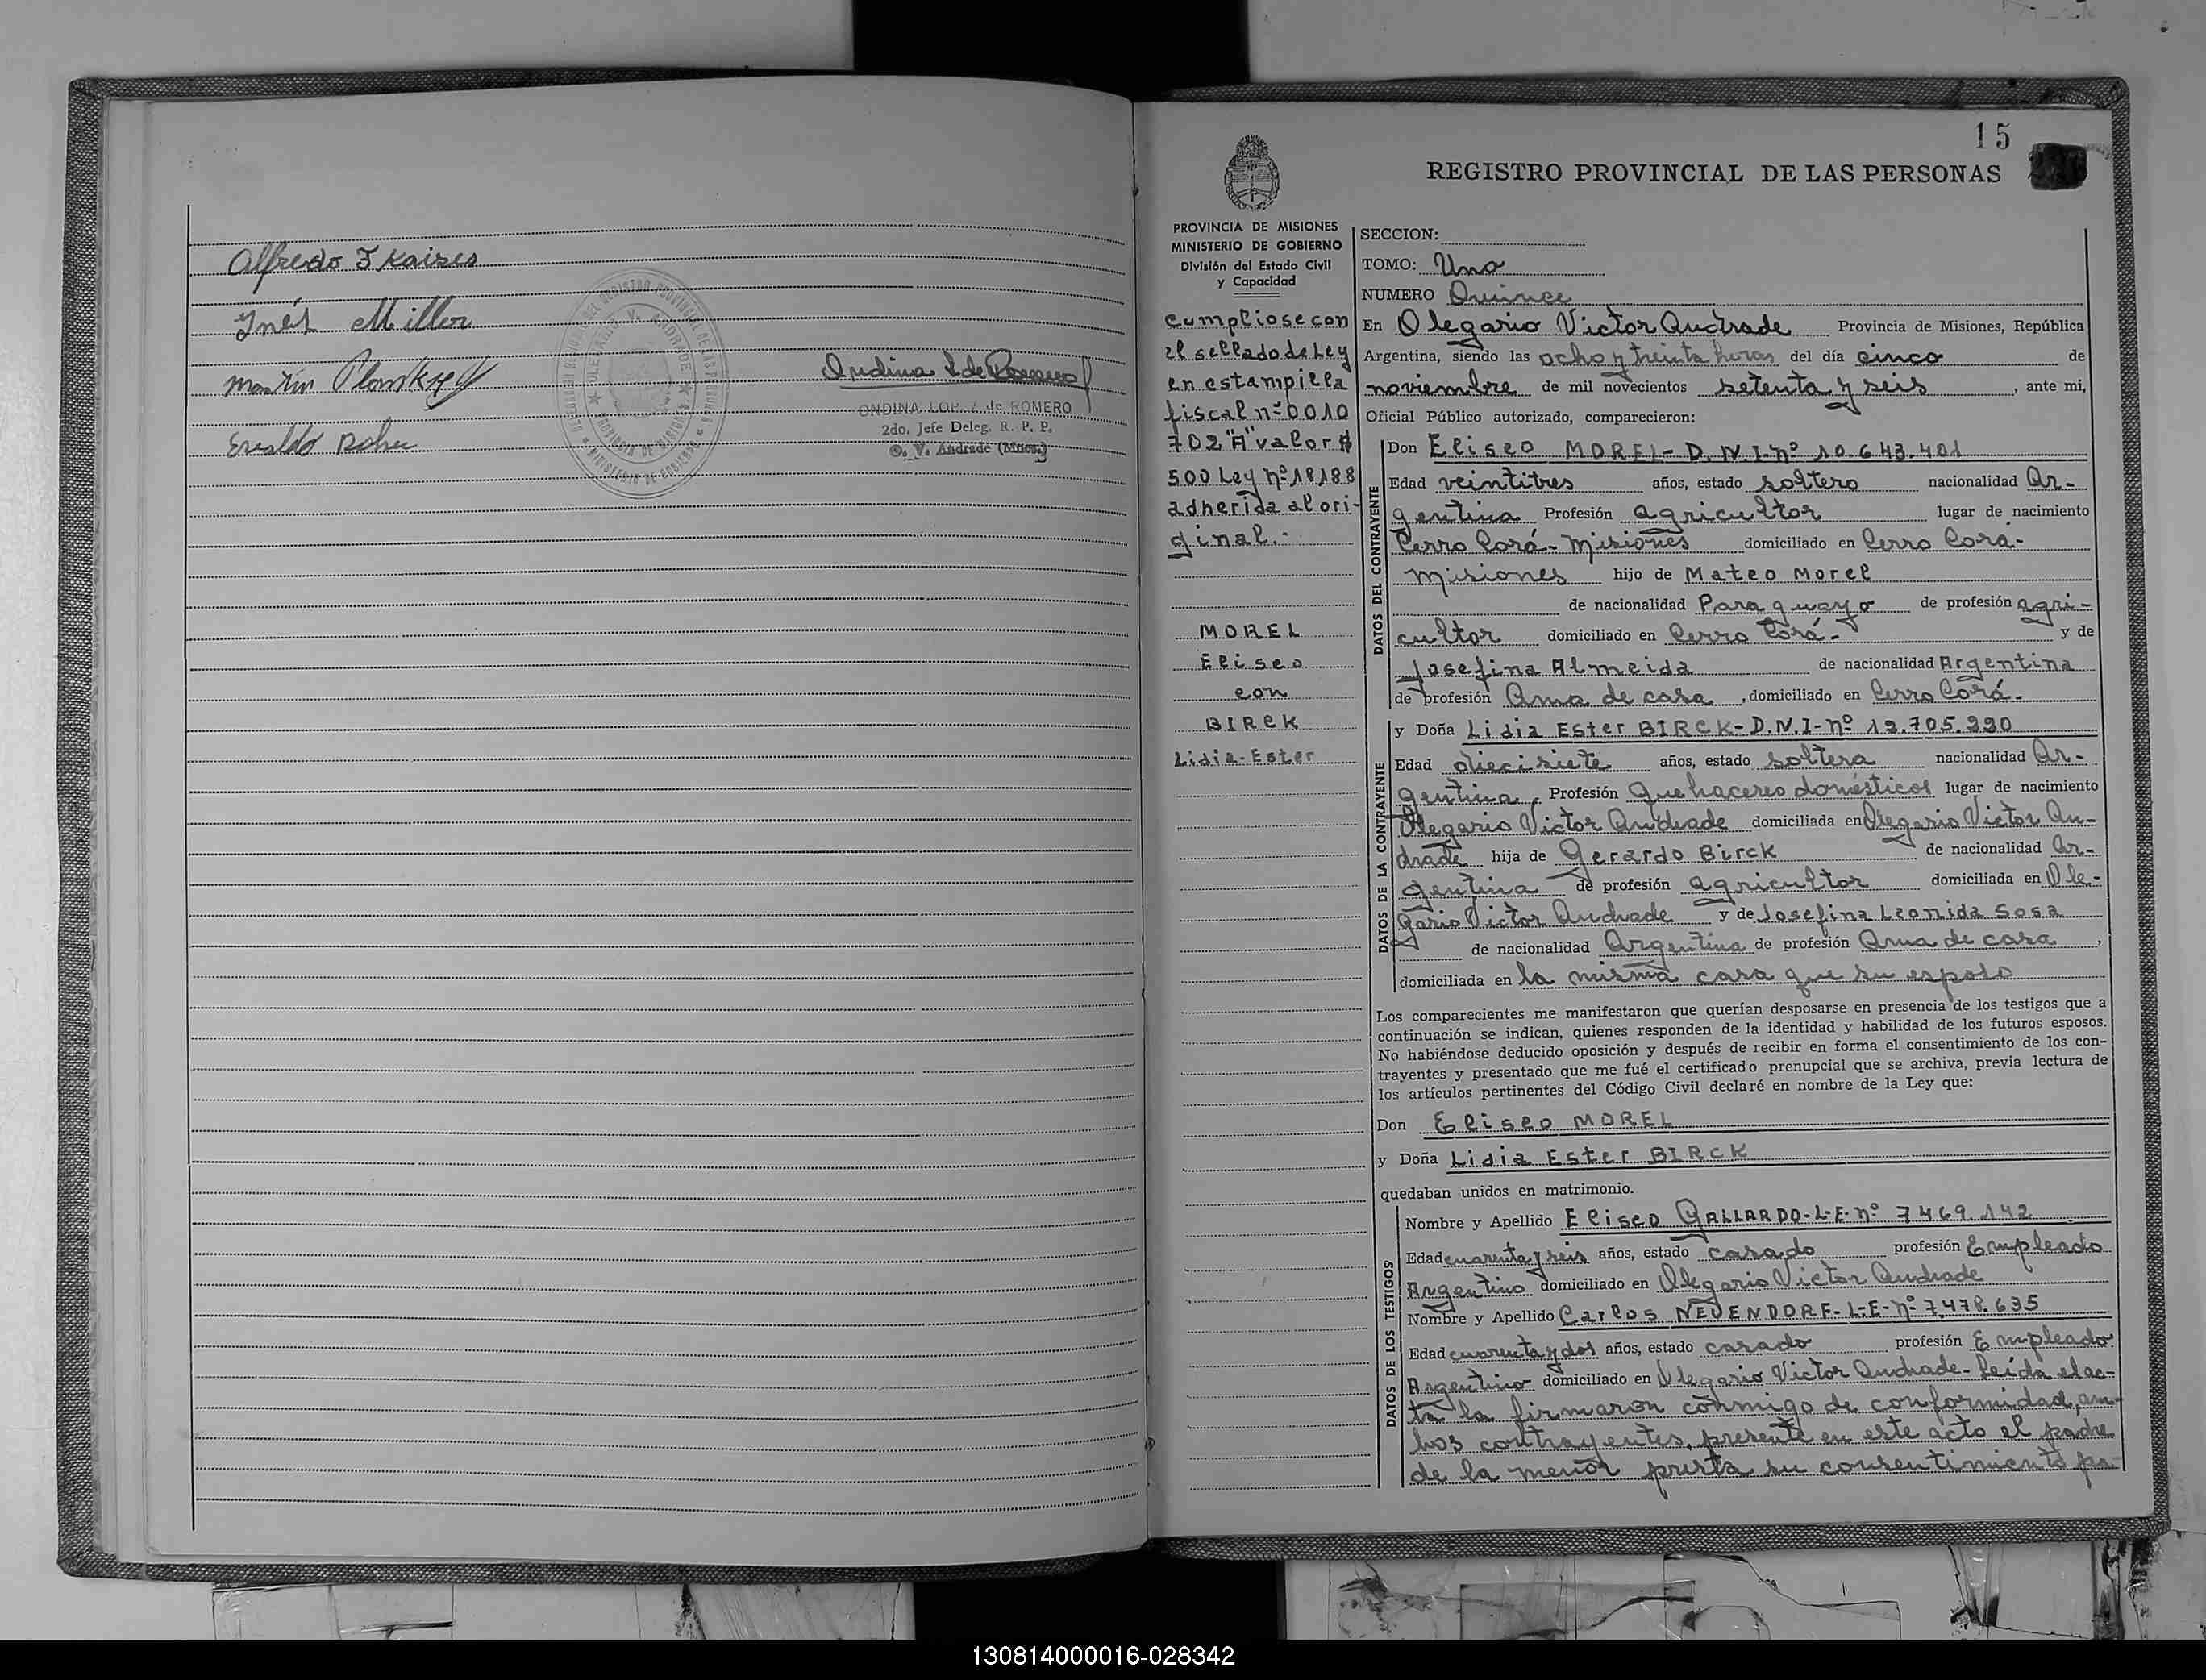 Alfredo J Kaises
Inés Miller
Martín
Evaldo
ONDINA LOP Z de ROMERO
2do. Jefe Deleg. R. P. P.
O. V. Andrade (Mnes.)
15
REGISTRO PROVINCIAL DE LAS PERSONAS
PROVINCIA DE MISIONES
MINISTERIO DE GOBIERNO
División del Estado Civil
y Capacidad
cumpliose con
el sellado de Ley
en estampilla
fiscal nº 0010
702 "A" valor $
500 Ley nº 18188
adherida al ori-
ginal.-
MOREL
Eliseo
con
BIRCK
Lidia-Ester
SECCION:
TOMO: Uno
NUMERO Quince
En Olegario Victor Andrade Provincia de Misiones, República
Argentina, siendo las ocho y treinta horas del día cinco de
noviembre de mil novecientos setenta y seis, ante mi,
Oficial Público autorizado, comparecieron:
DATOS DEL CONTRAYENTE
Don Eliseo MOREL- D.N.I-nº 10.643.401
Edad veintitres años, estado soltero nacionalidad Ar-
gentina Profesión agricultor lugar de nacimiento
Cerro Corá- Misiones domiciliado en Cerro Corá-
Misiones hijo de Mateo Morel
de nacionalidad Paraguayo de profesión agri-
cultor domiciliado en Cerro Corá- y de
Josefina Almeida de nacionalidad Argentina
de profesión Ama de casa, domiciliado en Cerro Corá.
DATOS DE LA CONTRAYENTE
y Doña Lidia Ester BIRCK-D.N.I-nº 12.705.990
Edad diecisiete años, estado soltera nacionalidad Ar-
gentina, Profesión Quehaceres domésticos lugar de nacimiento
Olegario Victor Andrade domiciliada en Olegario Victor An-
drade hija de Gerardo Birck de nacionalidad Ar-
gentina de profesión agricultor domiciliada en Ole-
gario Victor Andrade y de Josefina Leonida Sosa
de nacionalidad Argentina de profesión Ama de casa,
domiciliada en la misma casa que su esposo
Los comparecientes me manifestaron que querían desposarse en presencia de los testigos que a
continuación se indican, quienes responden de la identidad y habilidad de los futuros esposos.
No habiéndose deducido oposición y después de recibir en forma el consentimiento de los con-
trayentes y presentado que me fué el certificado prenupcial que se archiva, previa lectura de
los artículos pertinentes del Código Civil declaré en nombre de la Ley que:
Don Eliseo MOREL
y Doña Lidia Ester BIRCK
quedaban unidos en matrimonio.
DATOS DE LOS TESTIGOS
Nombre y Apellido Eliseo GALLARDO-L-E-nº 7469.142
Edad cuarenta y seis años, estado casado profesión Empleado
Argentino domiciliado en Olegario Victor Andrade
Nombre y Apellido Carlos NEUENDORF-L-E-nº 7.478.635
Edad cuarenta y dos años, estado casado profesión Empleado
Argentino domiciliado en Olegario Victor Andrade- Leída el ac-
ta la firmaron conmigo de conformidad, am-
bos contrayentes, presente en este acto el padre
de la menor presta su consentimiento pa-
130814000016-028342